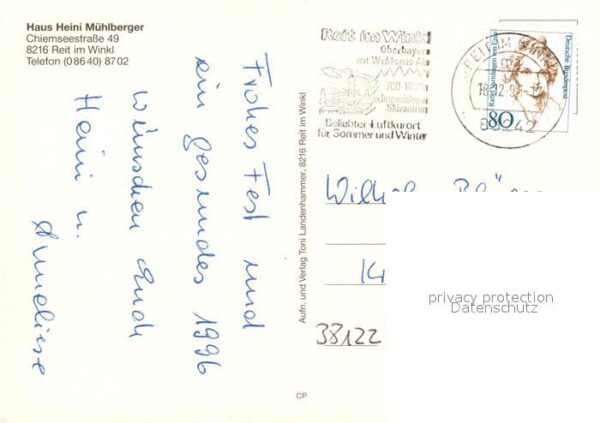 Haus Heini Mühlberger
Chiemseestraße 49
8216 Reit im Winkl
Telefon (08640) 8702
Frohes Fest und
ein gesundes 1996
wünschen Euch
Heini u.
Anneliese
Aufn. und Verlag Toni Landenhammer, 8216 Reit im Winkl
CP
Reit im Winkl
Oberbayern
mit Winklmoos-Alm
700-
Beliebter Luftkurort
für Sommer und Winter
83242
Deutsche Bundespost
Rahel Varnhagen von Ense
80
38122
privacy protection
Datenschutz